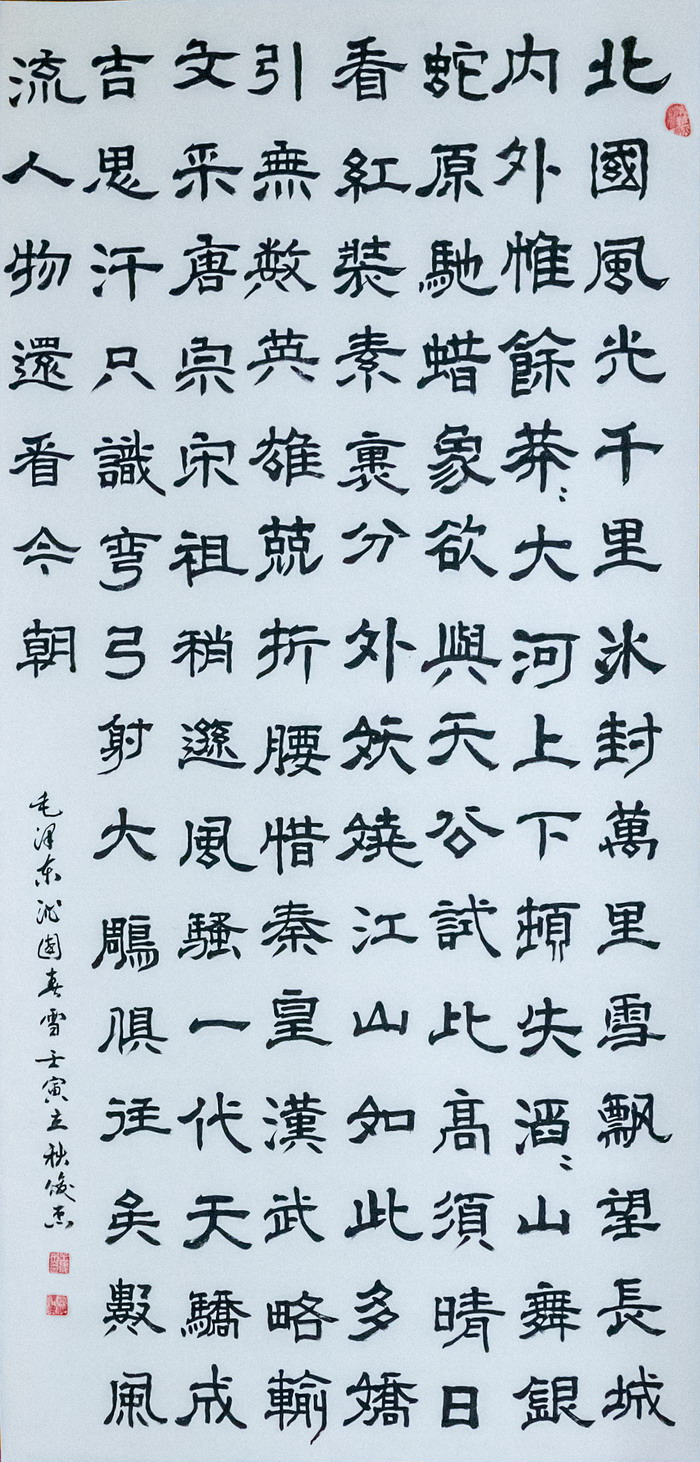 北國風光千里冰封萬里雪飄望長城
内外惟餘莽〻大河上下頓失滔〻山舞銀
蛇原馳蜡象欲與天公試比高須晴日
看紅裝素裹分外妖嬈江山如此多嬌
引無數英雄競折腰惜秦皇漢武略輸
文采唐宗宋祖稍遜風騷一代天驕成
吉思汗只識彎弓射大鵰俱往矣數風
流人物還看今朝
毛泽东沁園春雪壬寅立秋俊杰